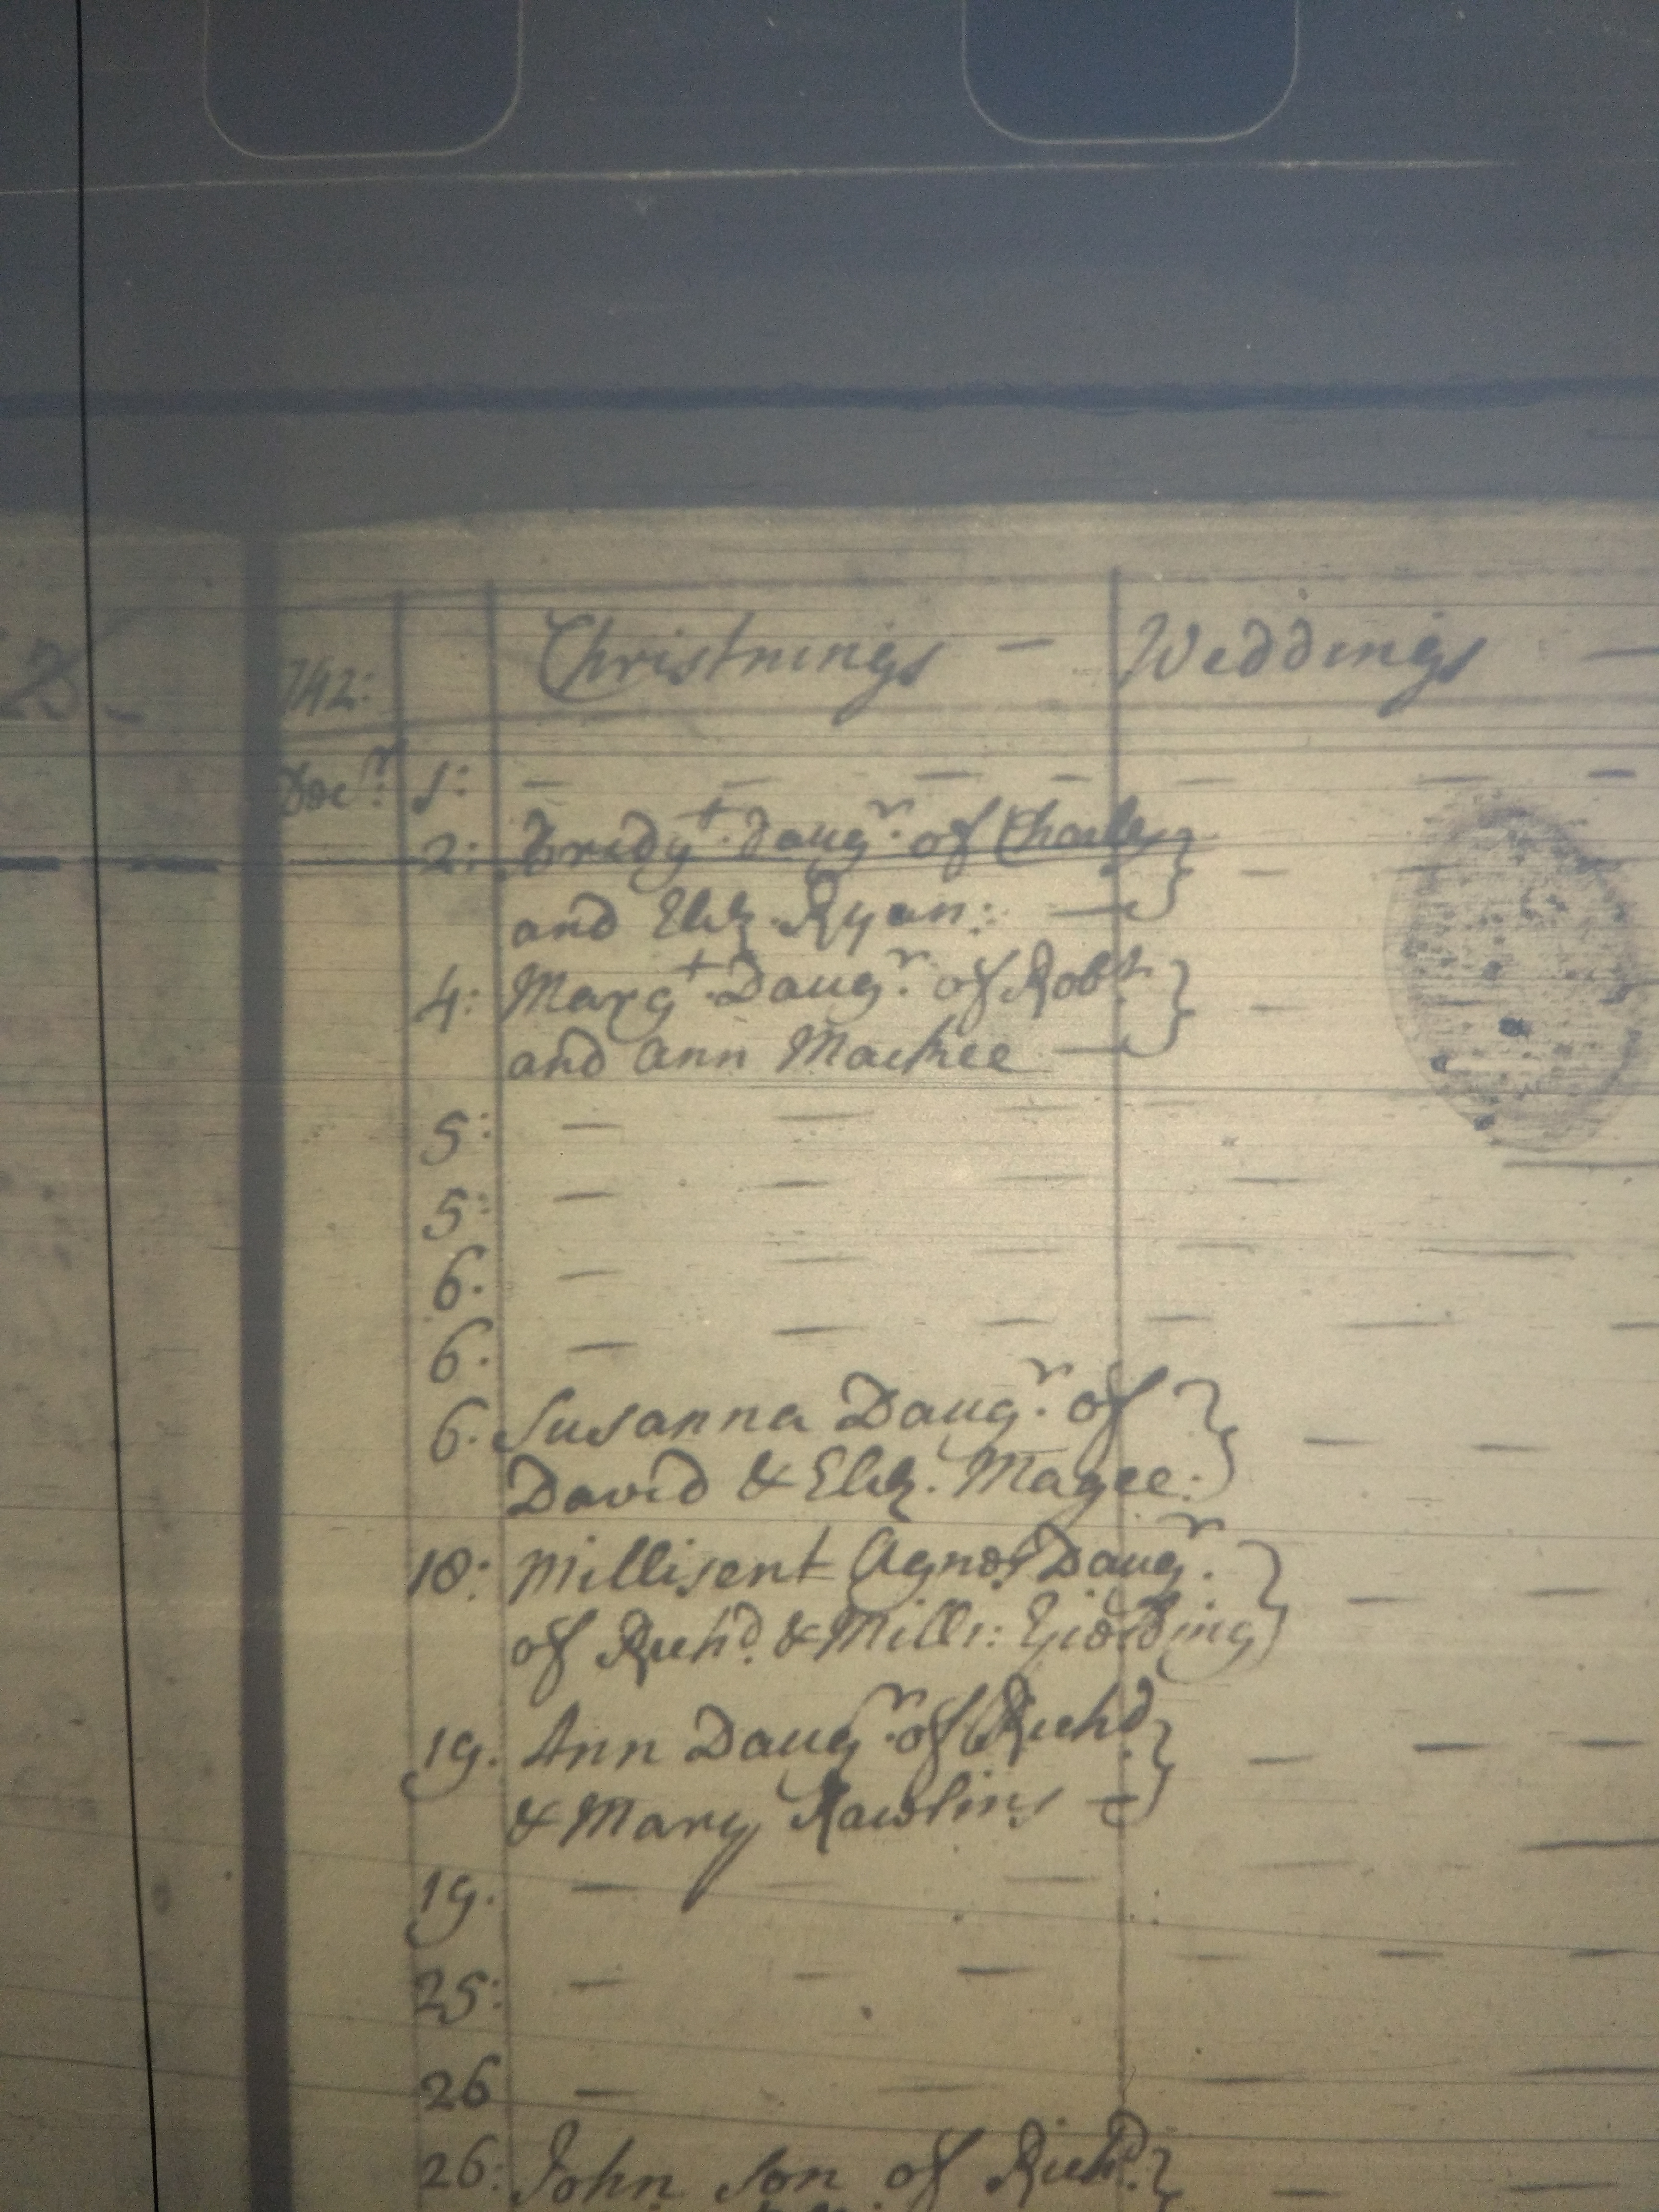 742: Christnings — Weddings —
Decr. 1: — — — — — — —
2: Bridgt. Daugr. of Charles
and Eliz. Ryan: —
4: Margt. Daugr. of Robt.
and Ann Mackee —
5: — — —
5: — — —
6. — — —
6. — — —
6. Susanna Daugr. of
David & Eliz. Magee.
18: Millisent Agnes Daugr.
of Richd. & Mill:
19. Ann Daugr. of Richd.
& Mary Rawlins —
19. — — —
25: — — —
26 — —
26: John son of Richd.